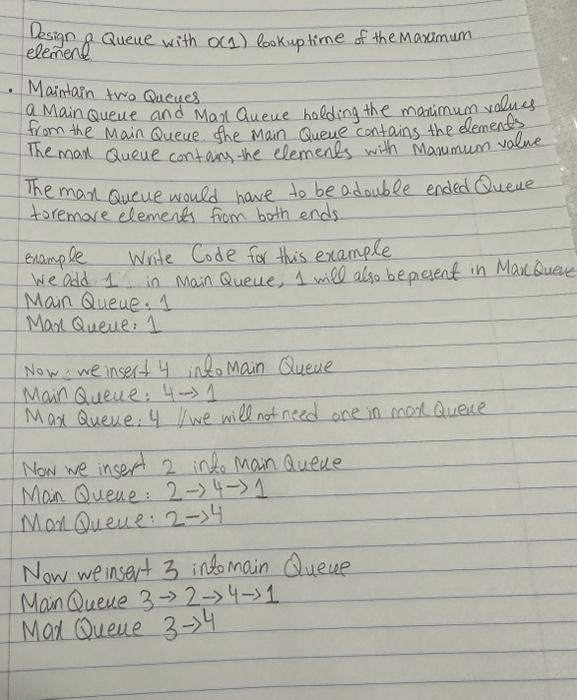 Design a Queue with O(1) lookup time of the Maximum
element
• Maintain two Queues
a Main Queue and Max Queue holding the maximum values
from the Main Queue. The Main Queue contains the elements
The max Queue contains the elements with Maxumum value
The max Queue would have to be a double ended Queue
to remove elements from both ends
example Write Code for this example
We add 1 in Main Queue, 1 will also be present in Max Queue
Main Queue: 1
Max Queue: 1
Now we insert 4 into Main Queue
Main Queue: 4->1
Max Queue: 4 //we will not need one in max Queue
Now we insert 2 into Main Queue
Main Queue: 2->4->1
Max Queue: 2->4
Now we insert 3 into main Queue
Main Queue 3->2->4->1
Max Queue 3->4